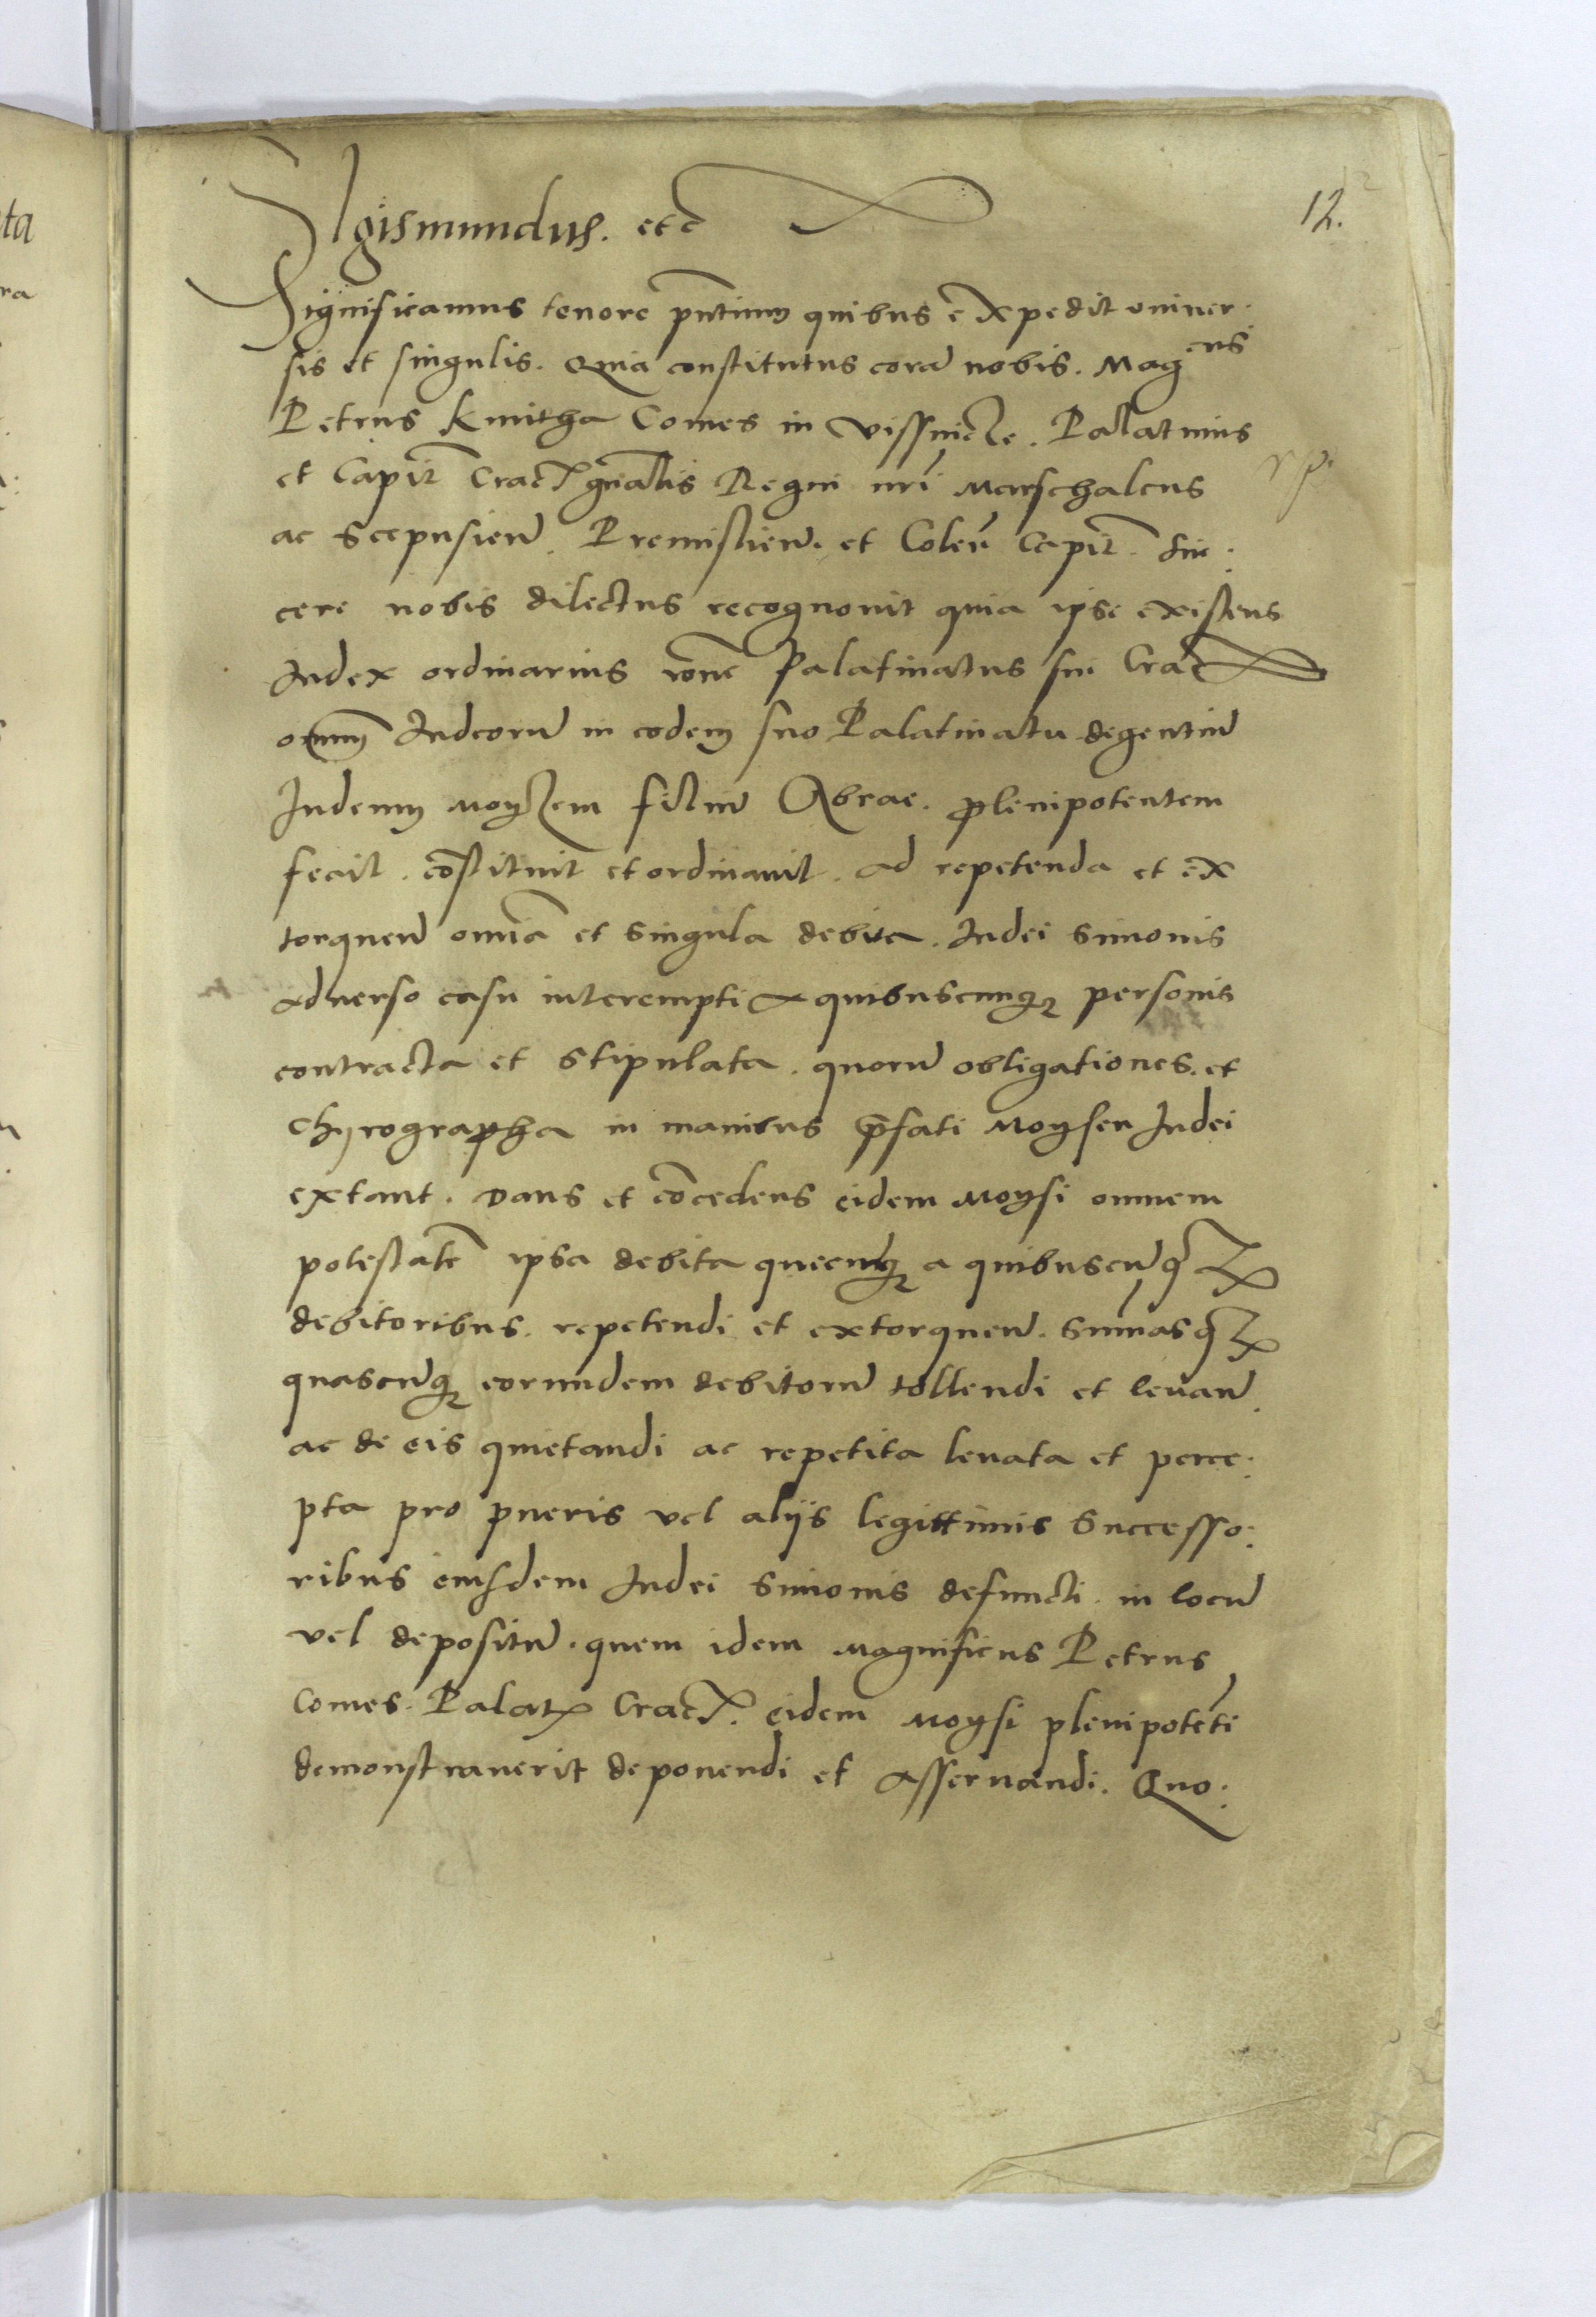 Sigismundus. etc
12.
Significamus tenore pntium quibus expedit univer.
sis et singulis. Quia constitutus corā nobis. Mag cus
Petrus Kmitha Comes in Vissnicze. Palatinus
et Capit Crac gnalis Regni nri Marschalcus
ac Scepusien. Premislien. et Colen Capit. Sin:
cere nobis dilectus recognovit quia ipse existens
Iudex ordinarius rone Palatinatus sui Crac
omnium Iudeorū in eodem suo Palatinatu degentiū
Iudeum Moyzem filiū Abrae. plenipotentem
fecit. cōstituit et ordinavit. Ad repetenda et ex
torquen omnia et singula debita. Iudei Simonis
adverso casu interempti a quibuscunq personis
contracta et stipulata. quorū obligationes. et
Chyrographa in manibus pfati Moysen Iudei
extant. Dans et cōcedens eidem Moysi omnem
potestatē ipsa debita quecunq a quibuscūq
debitoribus. repetendi et extorquen. Sumasq
quascūq eorumdem debitorū tollendi et levan.
ac de eis quietandi ac repetita levata et perce:
pta pro pueris vel aliis legittimis Successo:
ribus eiusdem Iudei Simonis defuncti. in locū
vel depositū. quem idem Magnificus Petrus
Comes. Palat Crac. eidem Moysi plenipotēti
demonstraverit deponendi et asservandi. Quo: